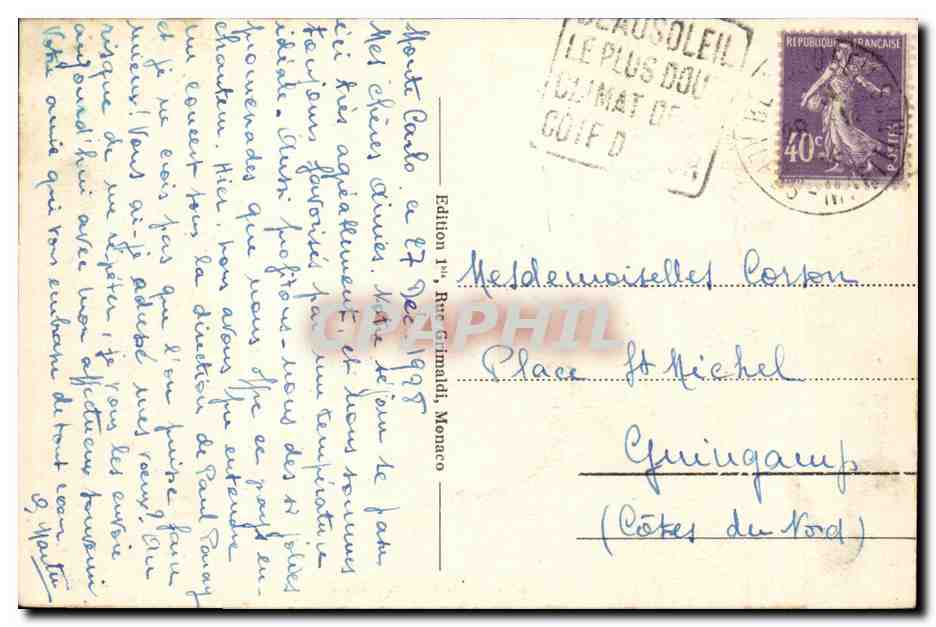 Monte Carlo, le 27 Déc. 1928
Mes chères amies. Notre séjour se passe
ici très agréablement, et nous sommes
toujours favorisés par une température
idéale. Aussi profitons-nous des si jolies
promenades que nous offre ce pays en-
chanteur. Hier, nous avons entendre
un concert sous la direction de Paul Paray
et je ne crois pas que l'on puisse faire
mieux! Vous ai-je adressé mes voeux? Au
risque de me répéter, je vous les envoie
aujourd'hui avec mon affectueux souvenir
Votre amie qui vous embrasse de tout coeur.
Edition 1 bis, Rue Grimaldi, Monaco
BEAUSOLEIL
LE PLUS DOU
CLIMAT DE
COTE D
REPUBLIQUE FRANÇAISE
40c
POSTES
Mesdemoiselles Corson
Place St Michel
Guingamp
(Côtes du Nord)
CPAPHIL